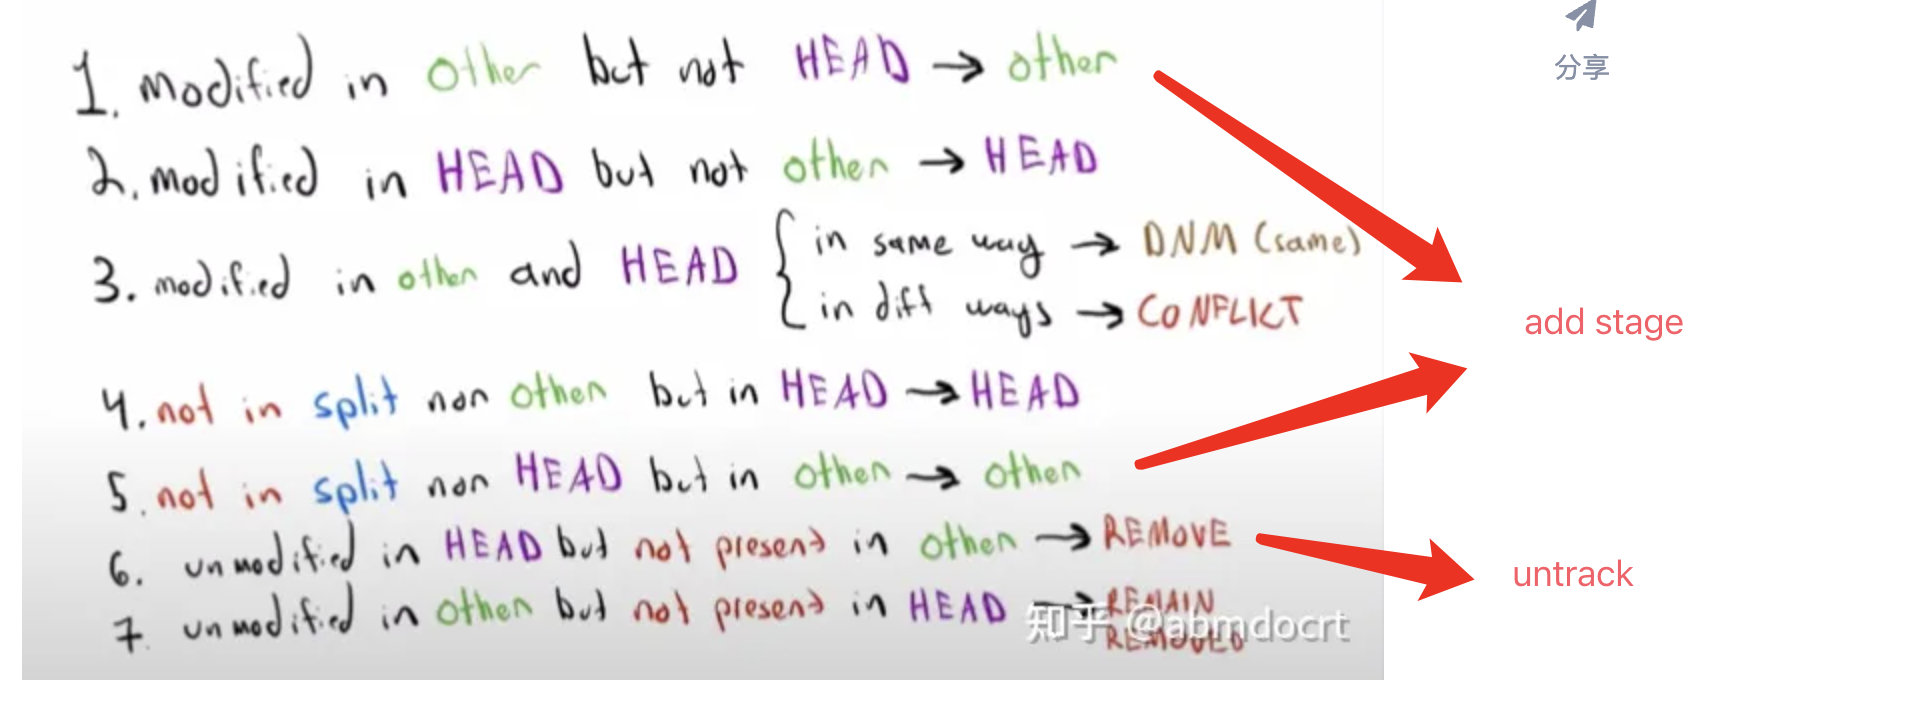 1. modified in other but not HEAD → other
分享
2. modified in HEAD but not other → HEAD
3. modified in other and HEAD { in same way → DNM (same)
in diff ways → CONFLICT
add stage
4. not in split nor other but in HEAD → HEAD
5. not in split nor HEAD but in other → other
6. unmodified in HEAD but not present in other → REMOVE
untrack
7. unmodified in other but not present in HEAD → REMAIN
REMOVED
知乎 @abmdocrt